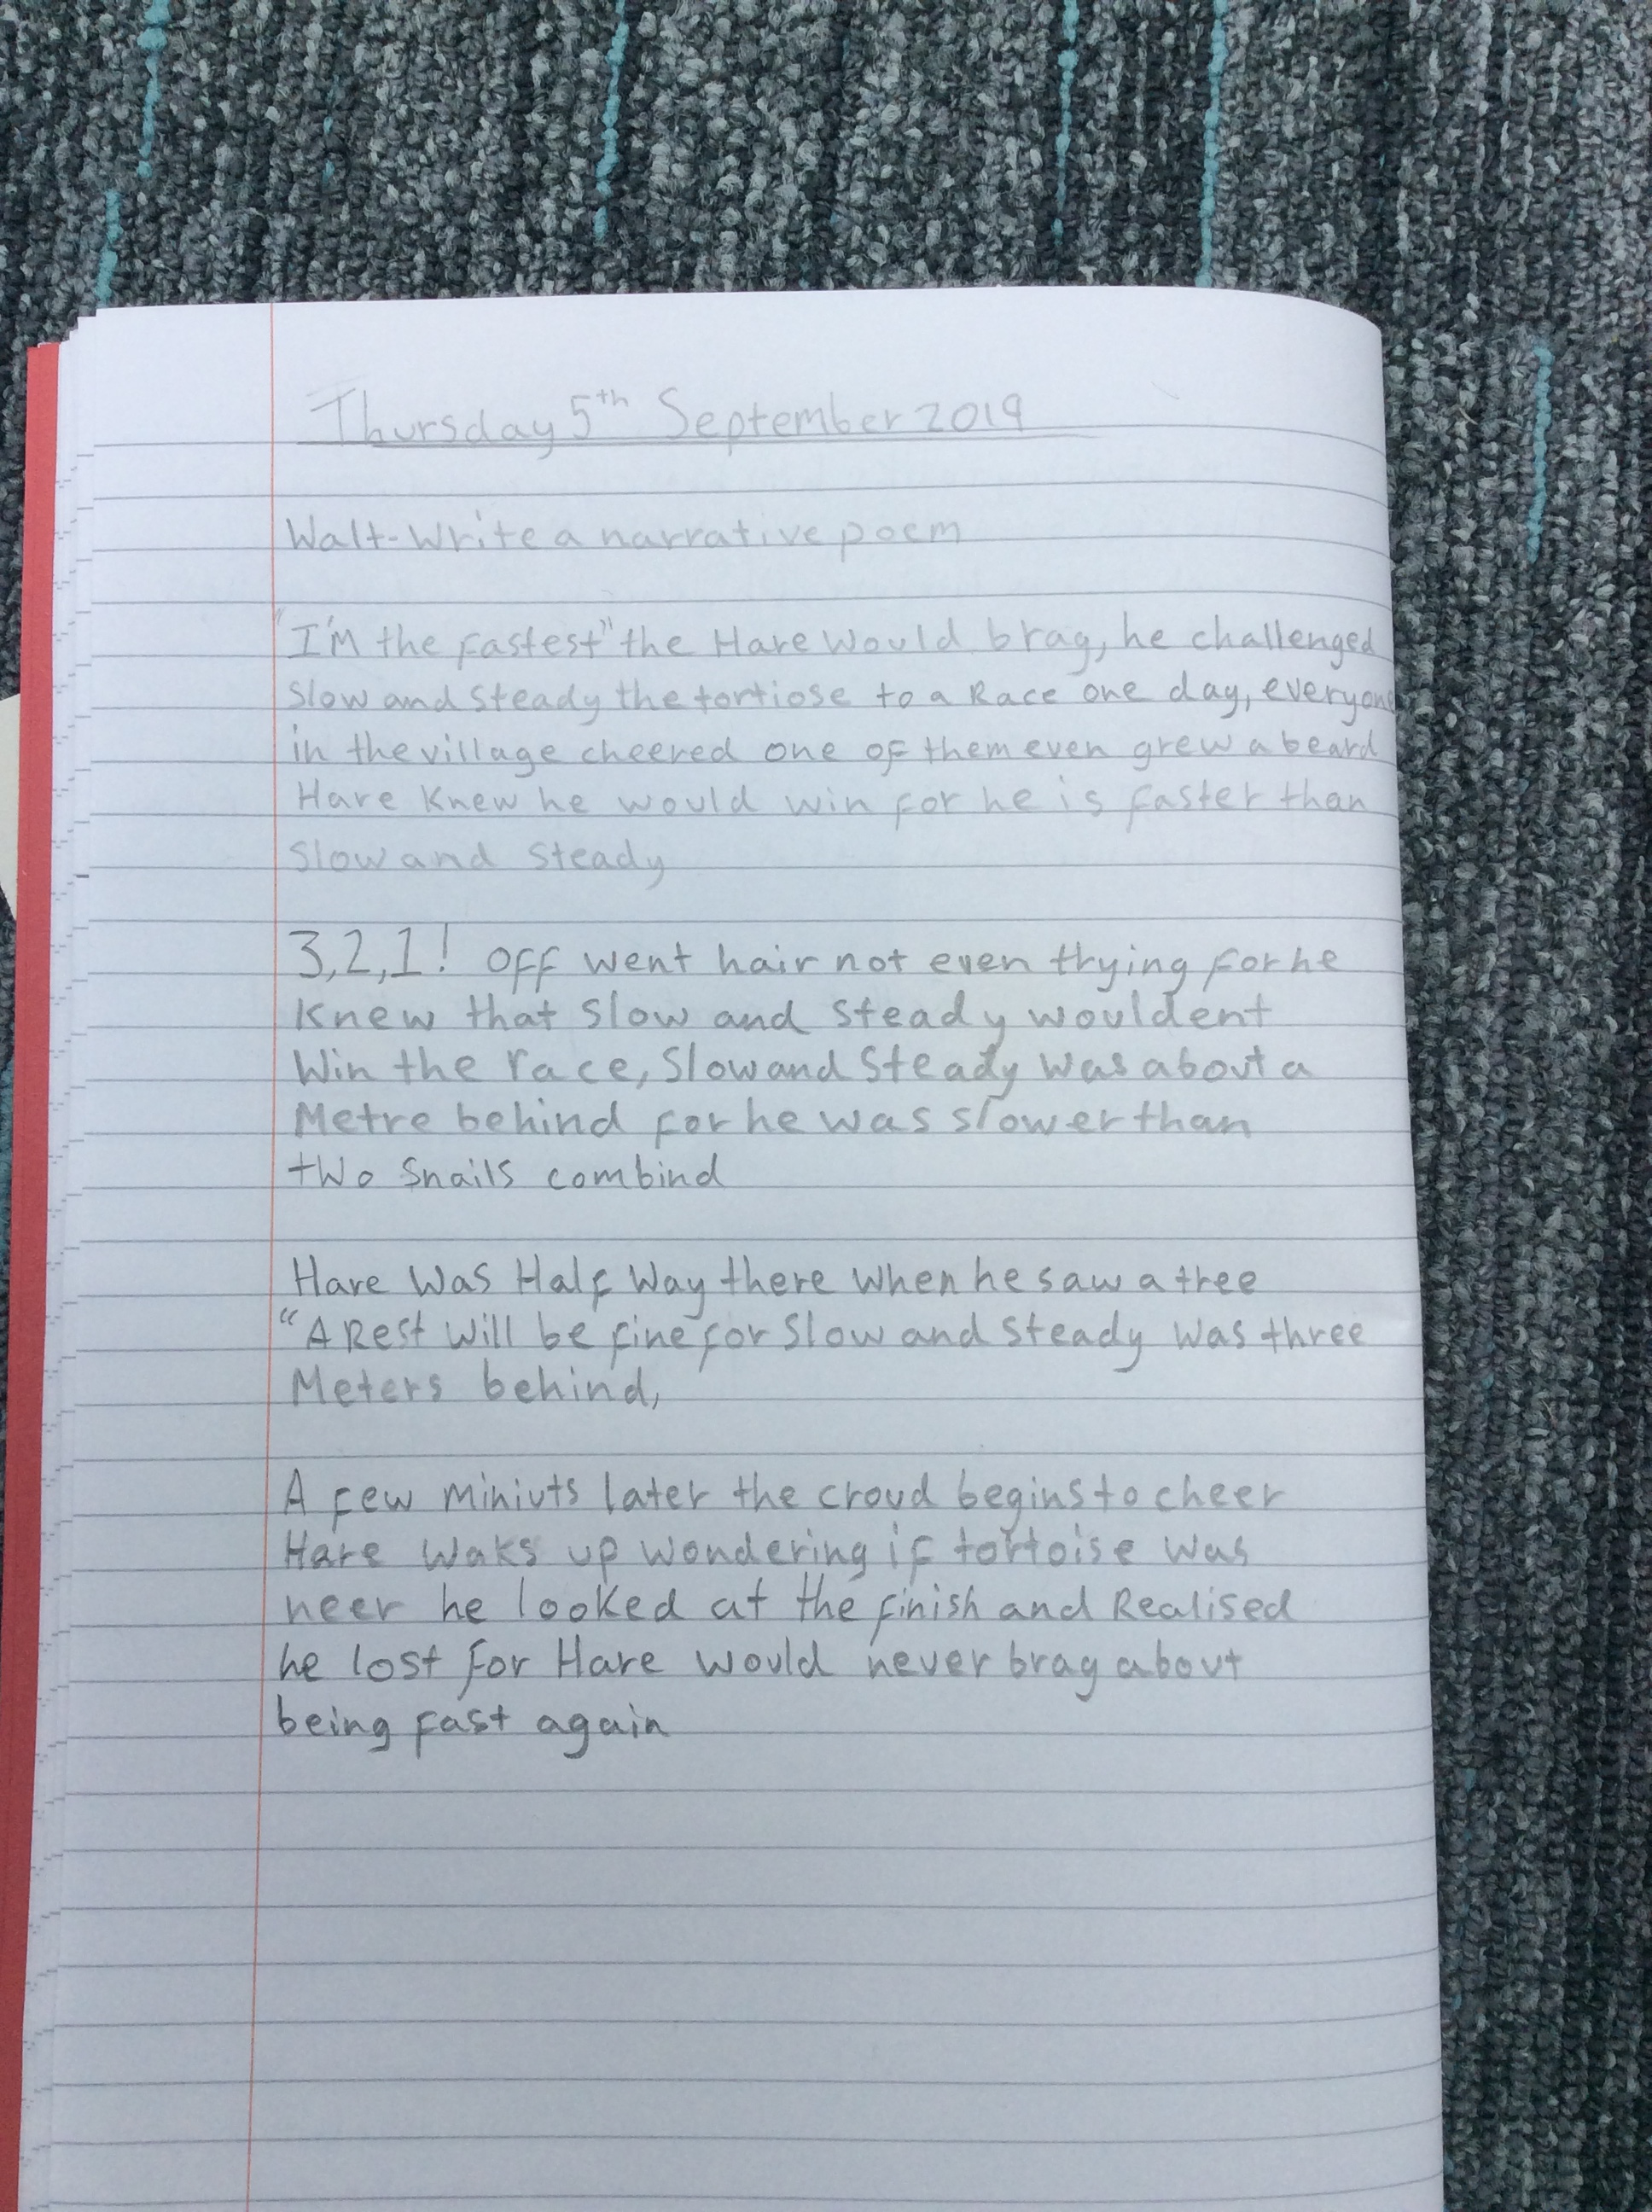 Thursday 5th September 2019
Walt-Write a narrative poem
"I'M the fastest" the Hare Would brag, he challenged
Slow and Steady the tortiose to a Race one day, everyone
in the village cheered one of them even grew a beard
Hare Knew he would win for he is faster than
Slow and Steady
3,2,1! OFF went hair not even trying for he
Knew that Slow and Steady wouldent
Win the race, Slow and Steady was about a
Metre behind for he was slower than
two Snails combind
Hare Was Half Way there when he saw a tree
"A Rest Will be fine for Slow and Steady Was three
Meters behind,
A few Miniuts later the croud begins to cheer
Hare waks up wondering if tortoise was
neer he looked at the finish and Realised
he lost for Hare would never brag about
being fast again